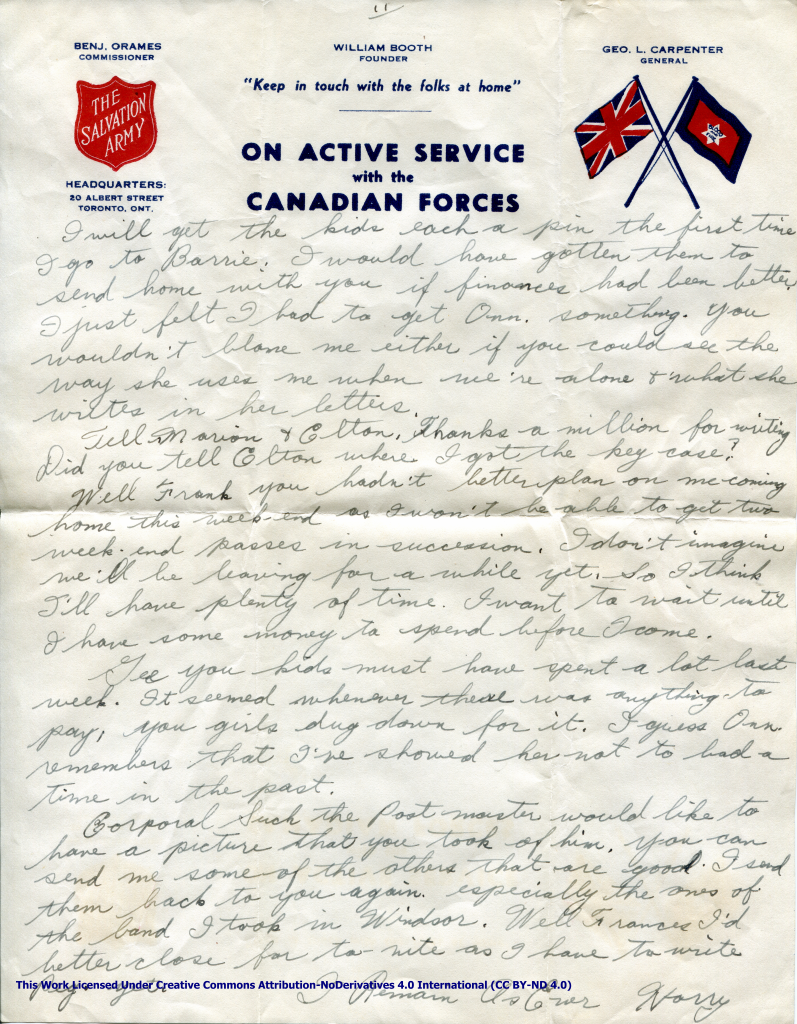 11
BENJ. ORAMES
COMMISSIONER
WILLIAM BOOTH
FOUNDER
GEO. L. CARPENTER
GENERAL
"Keep in touch with the folks at home"
THE
SALVATION
ARMY
ON ACTIVE SERVICE
with the
CANADIAN FORCES
HEADQUARTERS:
20 ALBERT STREET
TORONTO, ONT.
I will get the kids each a pin the first time
I go to Barrie. I would have gotten them to
send home with you if finances had been better.
I just felt I had to get Ann. something. You
wouldn't blame me either if you could see the
way she uses me when we're alone & what she
writes in her letters.
Tell Marion & Elton, Thanks a million for writing
Did you tell Elton where I got the key case?
Well Frank you hadn't better plan on me coming
home this week-end as I won't be able to get two
week-end passes in succession. I don't imagine
we'll be leaving for a while yet. So I think
I'll have plenty of time. I want to wait until
I have some money to spend before I come.
Gee you kids must have spent a lot last
week. It seemed whenever there was anything to
pay, you girls dug down for it. I guess Ann.
remembers that I've showed her not to bad a
time in the past.
Corporal Such the Post master would like to
have a picture that you took of him. You can
send me some of the others that are good. I send
them back to you again. especially the ones of
the band I took in Windsor. Well Frances I'd
better close for to-nite as I have to write
yet. I Remain As Ever Harry
This Work Licensed Under Creative Commons Attribution-NoDerivatives 4.0 International (CC BY-ND 4.0)